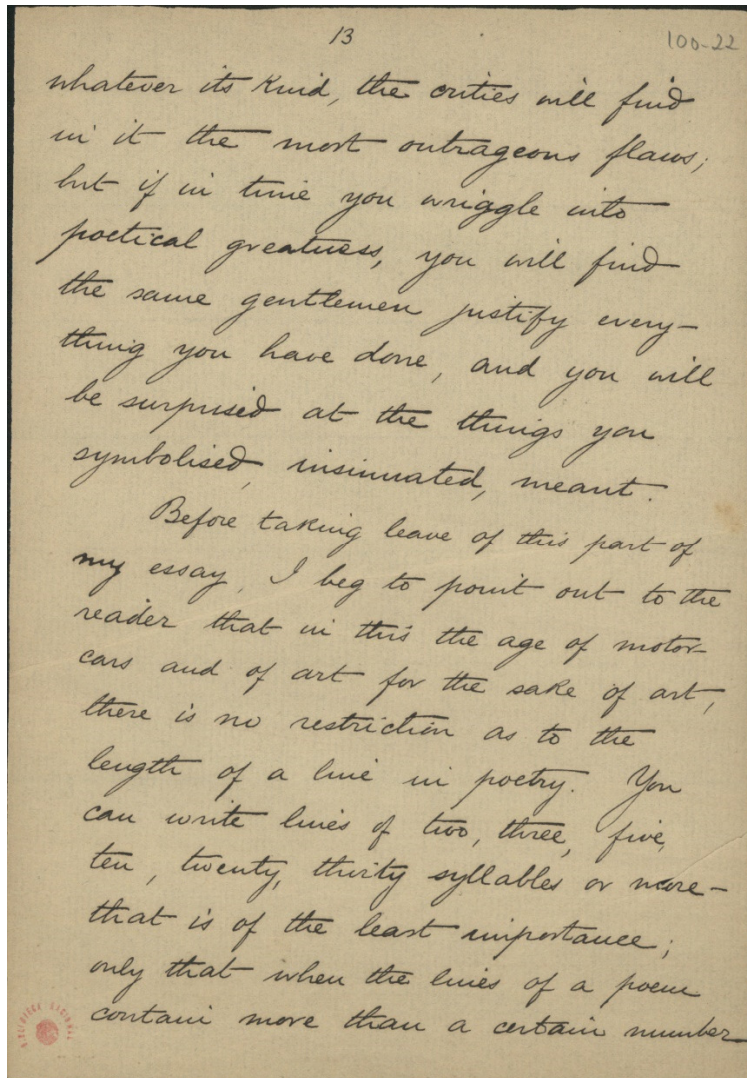 13
100-22
whatever its kind, the critics will find
in it the most outrageous flaws;
but if in time you wriggle into
poetical greatness, you will find
the same gentlemen justify every-
thing you have done, and you will
be surprised at the things you
symbolised, insinuated, meant.
Before taking leave of this part of
my essay, I beg to point out to the
reader that in this the age of motor-
cars and of art for the sake of art,
there is no restriction as to the
length of a line in poetry. You
can write lines of two, three, five,
ten, twenty, thirty syllables or more -
that is of the least importance;
only that when the lines of a poem
contain more than a certain number
BIBLIOTECA NACIONAL